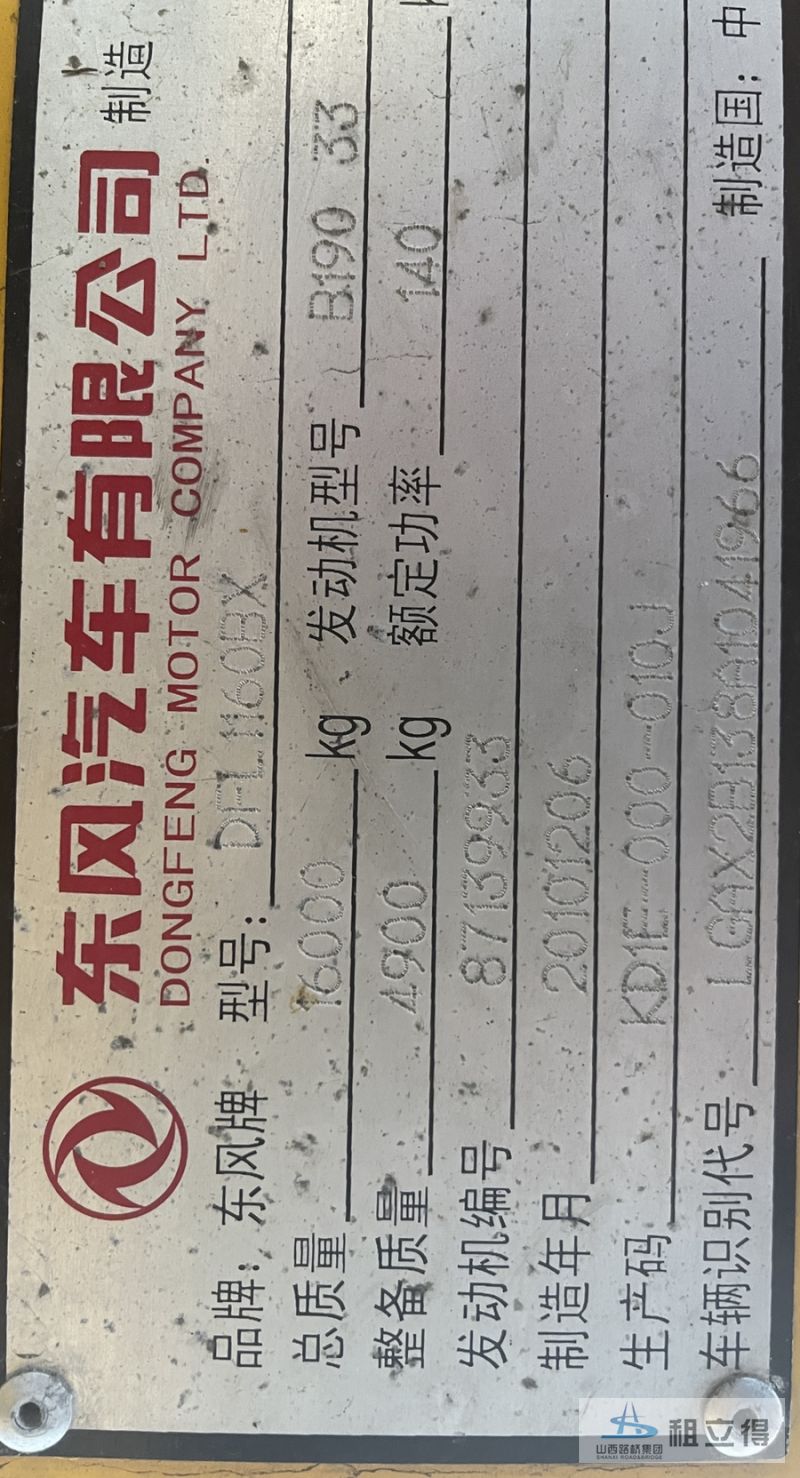 东风汽车有限公司 制造
DONGFENG MOTOR COMPANY LTD.
品牌：东风牌 型号：DFL1160BX
总质量 16000 kg 、发动机型号 B190 33
整备质量 4900 kg 额定功率 140
发动机编号 87139933
制造年月 20101206
生产码 KD1F-000-010J
车辆识别代号 LGAX2D138A1041966 制造国：中
山西路桥集团
SHANXI ROAD&BRIDGE
租立得